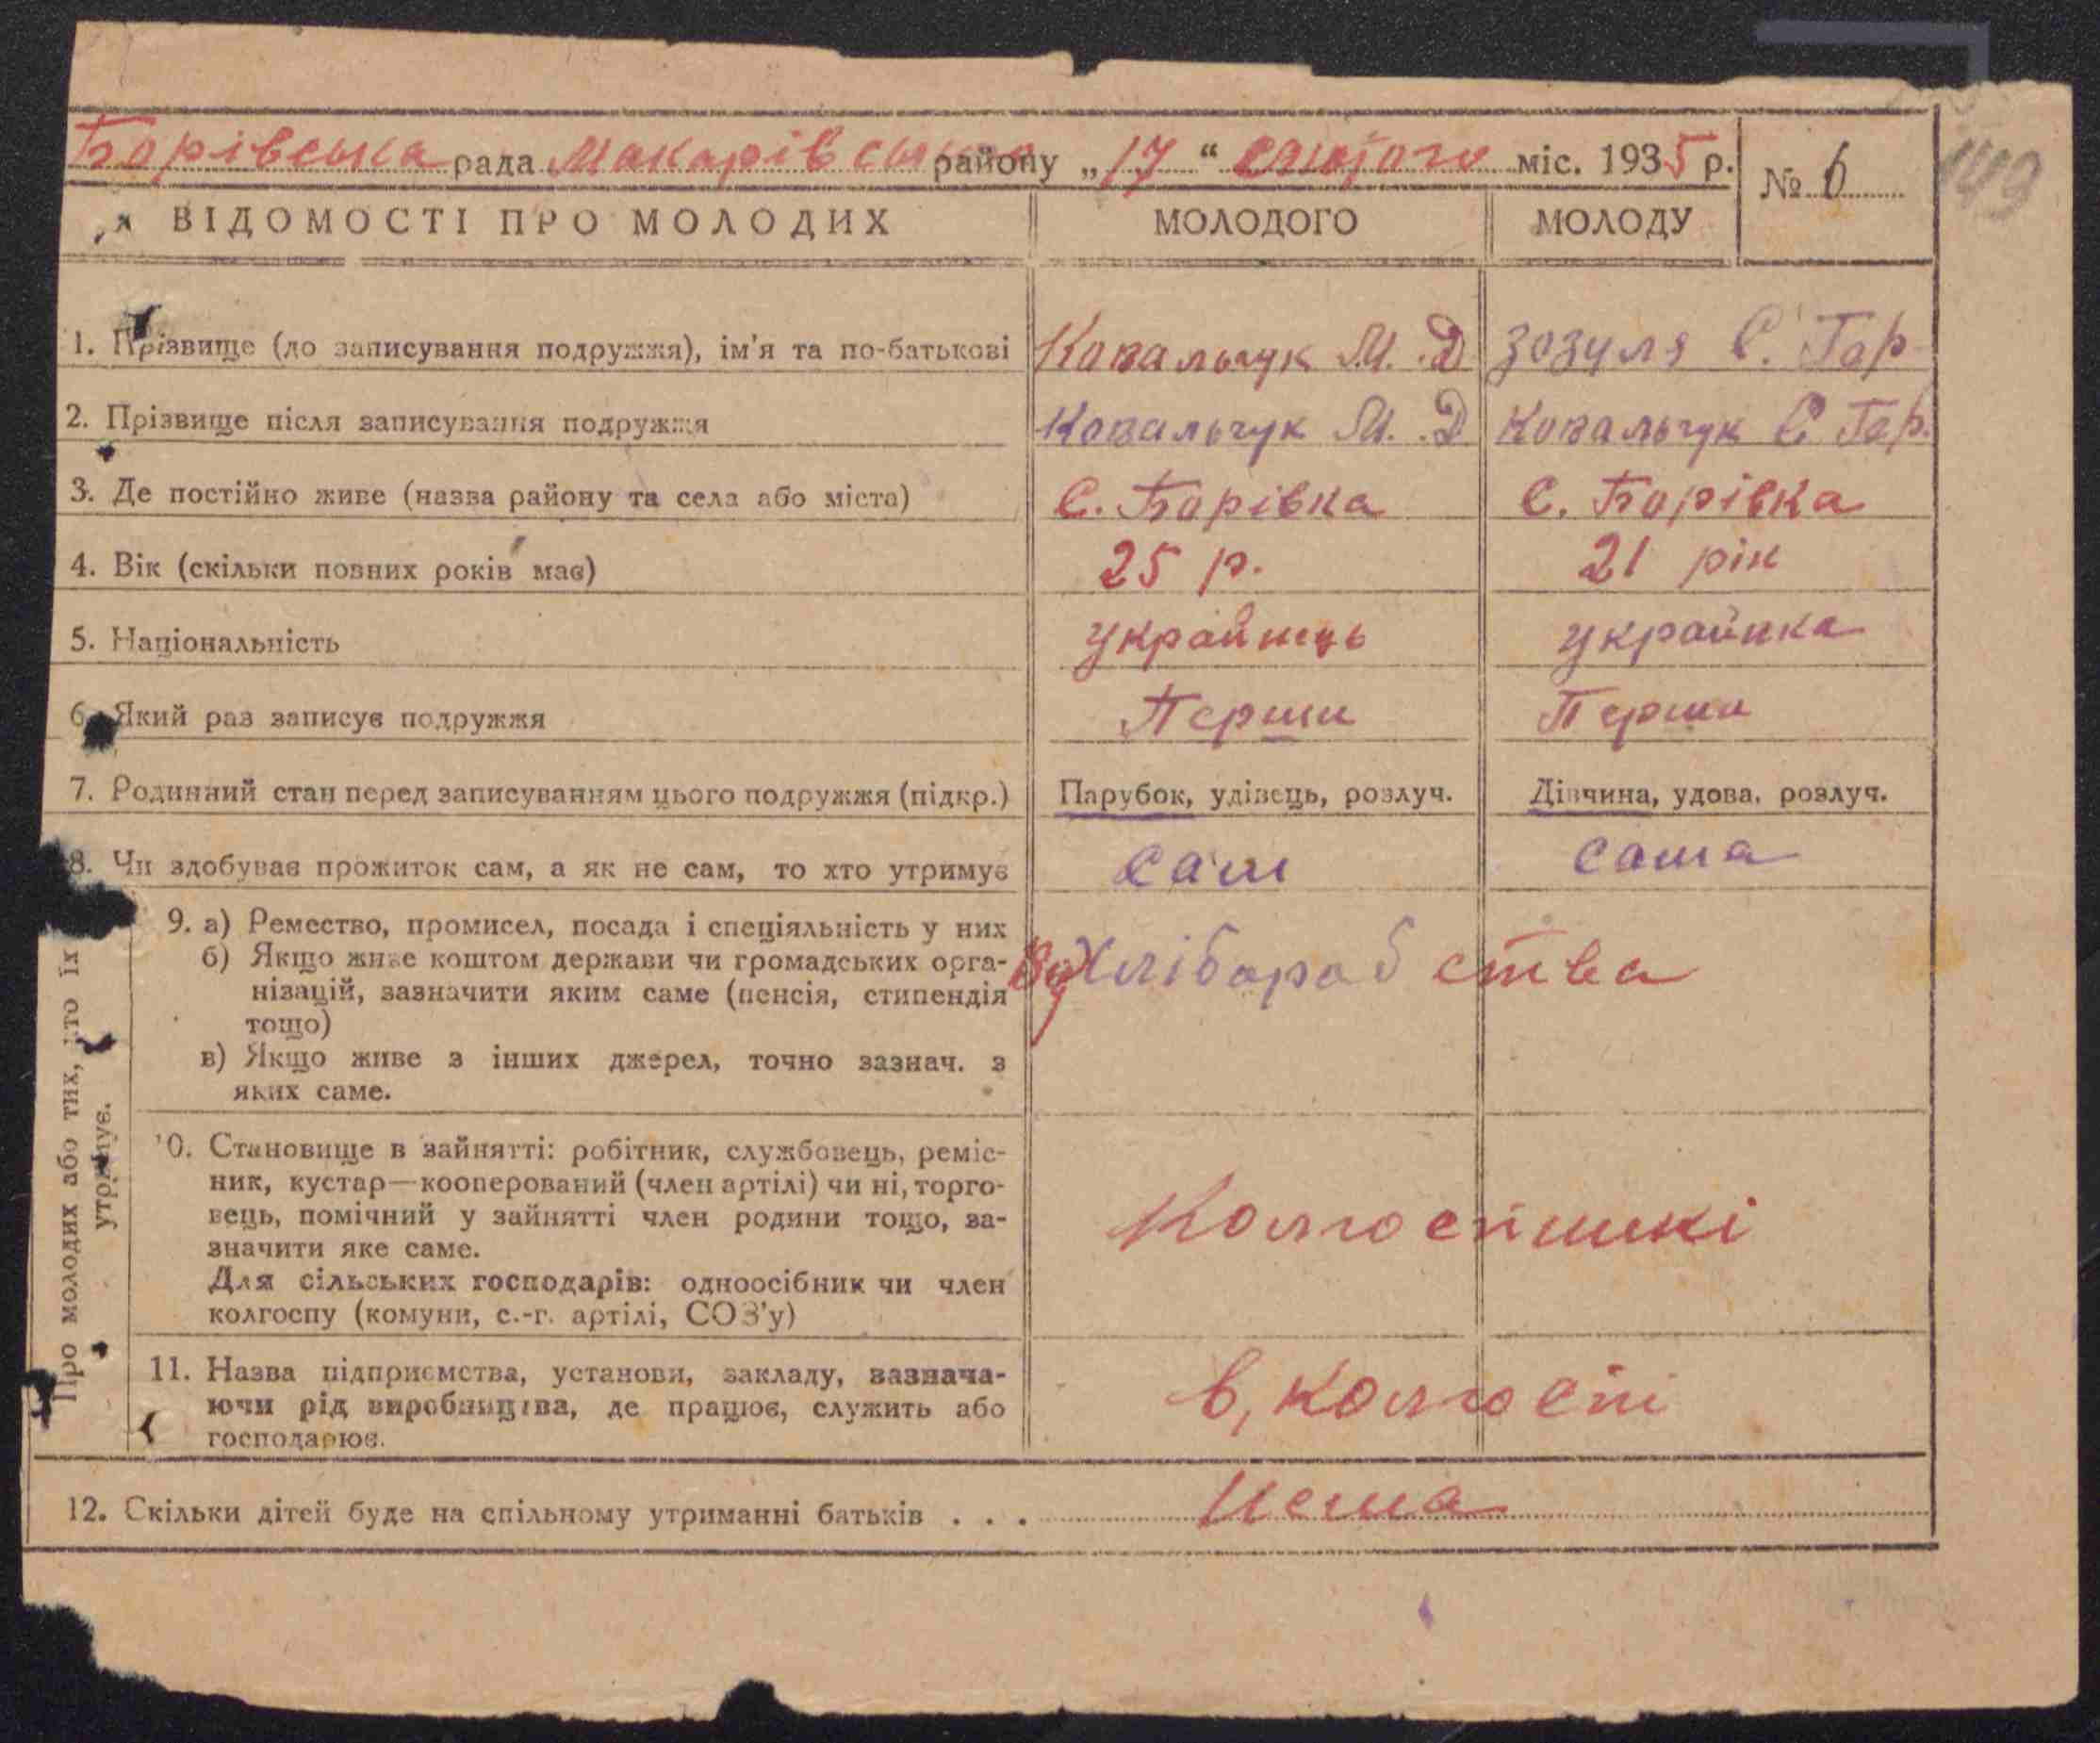 Борівська рада Макарівського району „17“ лютого міс. 1935 р. № 6
149
ВІДОМОСТІ ПРО МОЛОДИХ МОЛОДОГО МОЛОДУ
1. Прізвище (до записування подружжя), ім'я та по-батькові Ковальчук М. Д Зозуля Є. Гар.
2. Прізвище після записування подружжя Ковальчук М. Д Ковальчук Є Гар.
3. Де постійно живе (назва району та села або міста) С. Борівка С. Борівка
4. Вік (скільки повних років має) 25 р. 21 рік
5. Національність украйнець украйнка
6. Який раз записує подружжя Перши Перши
7. Родинний стан перед записуванням цього подружжя (підкр.) Парубок, удівець, розлуч. Дівчина, удова, розлуч.
8. Чи здобуває прожиток сам, а як не сам, то хто утримує сам сама
Про молодих або тих, хто їх утримує.
9. а) Ремество, промисел, посада і спеціяльність у них
б) Якщо живе коштом держави чи громадських орга-
нізацій, зазначити яким саме (пенсія, стипендія
тощо)
в) Якщо живе з інших джерел, точно зазнач. з
яких саме.
Хліборобства
10. Становище в зайнятті: робітник, службовець, реміс-
ник, кустар—кооперований (член артілі) чи ні, торго-
вець, помічний у зайнятті член родини тощо, за-
значити яке саме.
Для сільських господарів: одноосібник чи член
колгоспу (комуни, с.-г. артілі, СОЗ'у)
Колгоспники
11. Назва підприємства, установи, закладу, зазнача-
ючи рід виробництва, де працює, служить або
господарює.
в, колгоспі
12. Скільки дітей буде на спільному утриманні батьків . . . нема